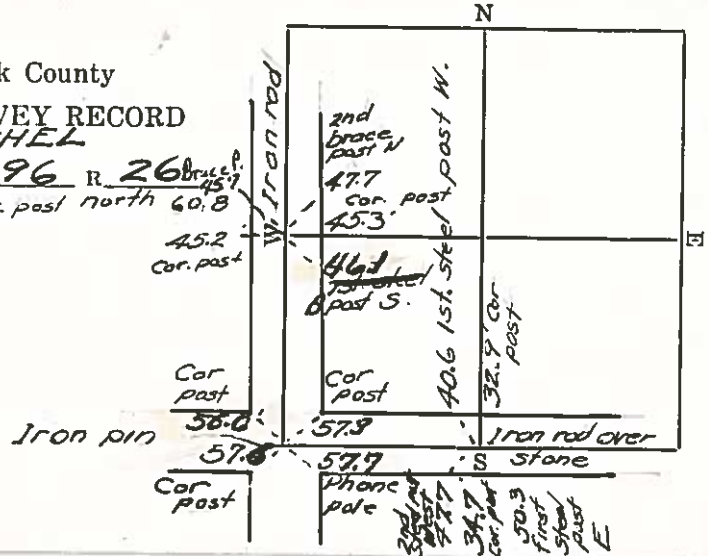 N
k County
VEY RECORD
HEL
96 R 26
Brace P.
45.7
post north 60.8
W. Iron rod
2nd
brace
post N
47.7
cor. post
45.3'
45.2
cor. post
W
E
46.1
post S.
40.6 1st. steel post W.
32.9' cor
post
Cor
post
56.0
Cor
post
57.9
Iron pin
57.6
57.7
Iron rod over
stone
S
Cor
post
Phone
pole
2nd
steel
west
47.7
34.7
cor. post
50.3
First
steel
post
E